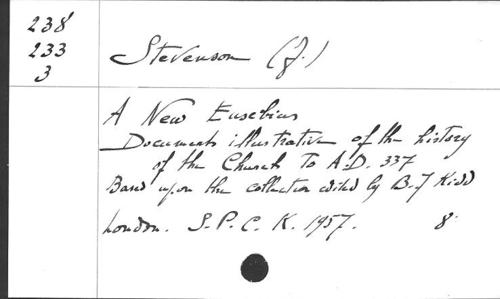 238
233
3
Stevenson (J.)
A New Eusebius
Documents illustrative of the history
of the Church to A.D. 337
Based upon the collection edited by B.J Kidd
London. S.P.C.K. 1957. 8°